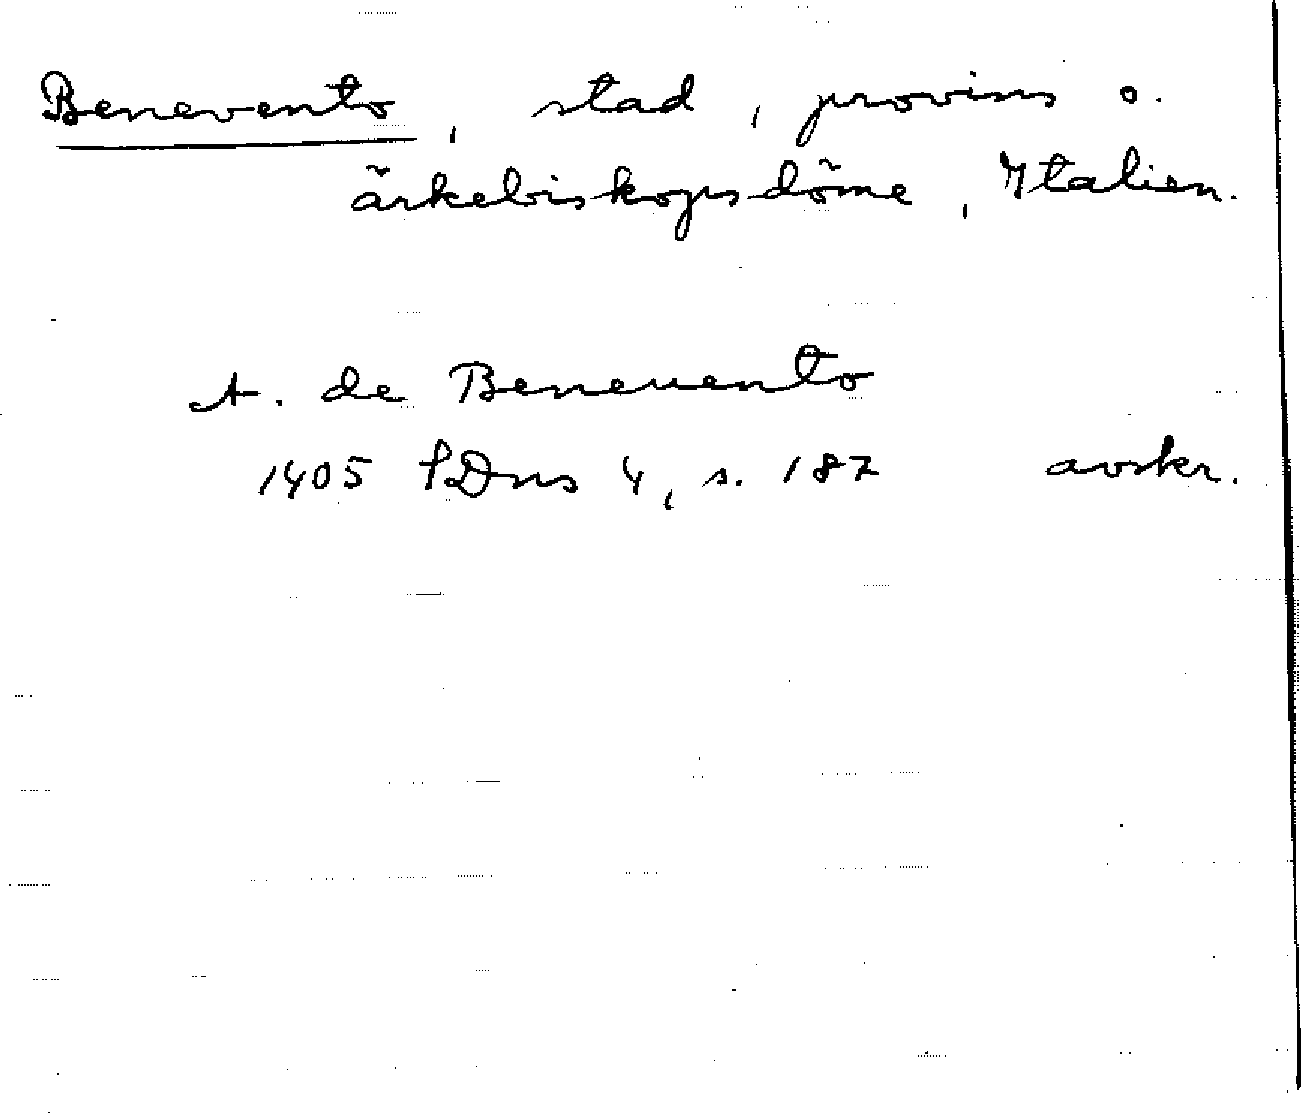 Benevento, stad, provins o.
ärkebiskopsdöme, Italien.
A. de Beneuento
1405 SDns 4, s. 187 avskr.